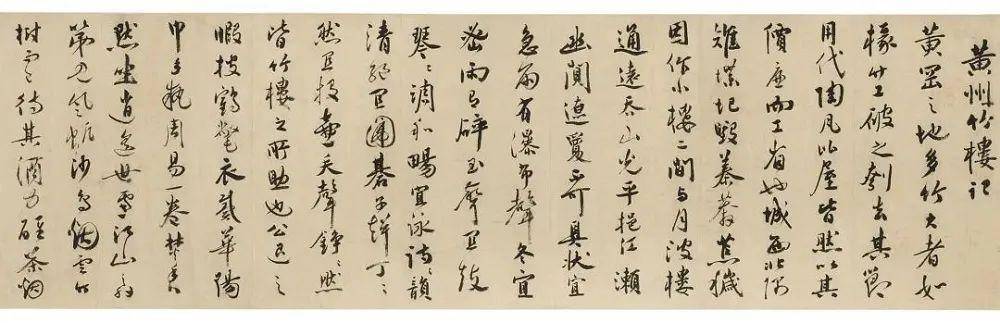 黃州竹樓記
黃岡之地多竹大者如
椽竹工破之刳去其節
用代陶瓦比屋皆然以其
價廉而工省也城西北隅
雉堞圮毀蓁莽荒穢
因作小樓二間與月波樓
通遠吞山光平挹江瀨
幽闃遼夐不可具狀宜
急雨有瀑布聲冬宜
密雨有碎玉聲宜鼓
琴〻調和暢宜詠詩〻韻
清絕宜圍碁子聲丁〻
然宜投壺矢聲錚〻然
皆竹樓之所助也公退之
暇披鶴氅衣戴華陽
巾手執周易一卷焚香
默坐消遣世慮江山之外
第見風帆沙鳥煙雲竹
樹而已待其酒力醒茶煙